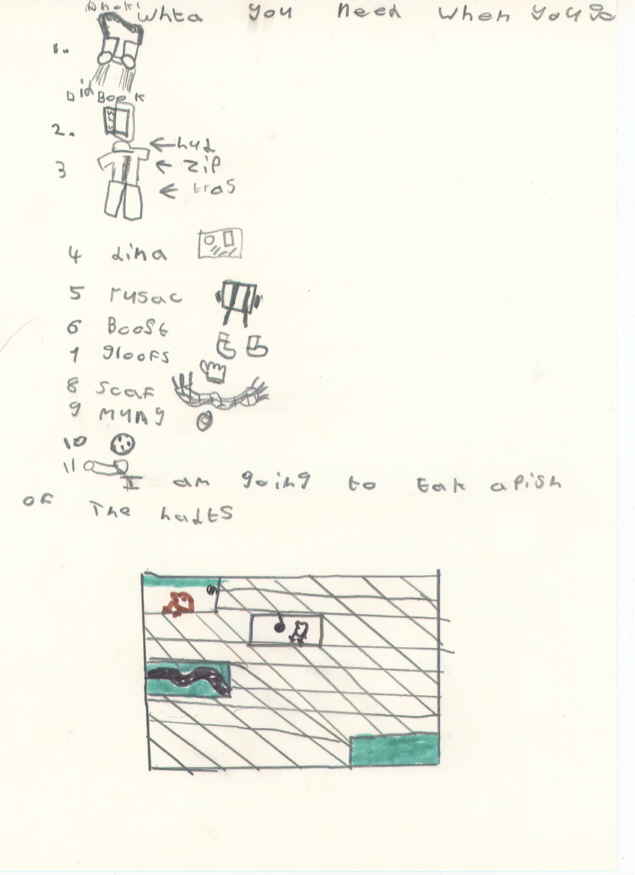 whta you need when you go
1.
Bidbook
2.
hud
3 zip
tros
4 dina
5 rusac
6 Boost
7 gloofs
8 scaf
9 muny
10
11
I am going to tak apish
of The hadts